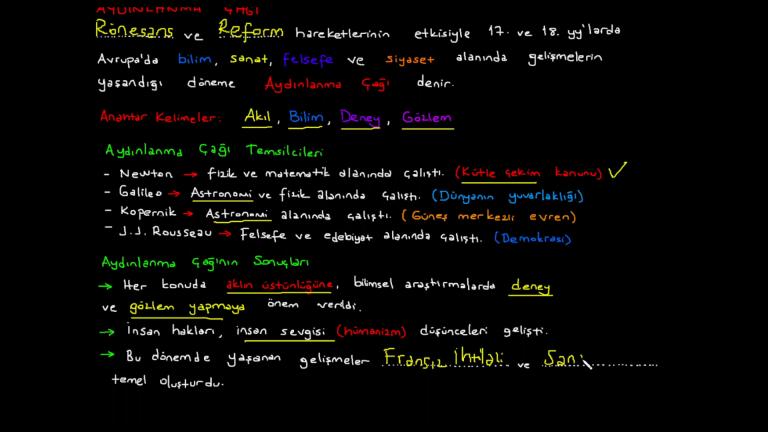 AYDINLANMA ÇAĞI
Rönesans ve Reform hareketlerinin etkisiyle 17. ve 18. yy'larda
Avrupa'da bilim, sanat, felsefe ve siyaset alanında gelişmelerin
yaşandığı döneme Aydınlanma Çağı denir.
Anahtar Kelimeler: Akıl, Bilim, Deney, Gözlem
Aydınlanma Çağı Temsilcileri
- Newton → fizik ve matematik alanında çalıştı. (Kütle çekim kanunu) ✓
- Galileo → Astronomi ve fizik alanında çalıştı. (Dünyanın yuvarlaklığı)
- Kopernik → Astronomi alanında çalıştı. (Güneş merkezli evren)
- J.J. Rousseau → Felsefe ve edebiyat alanında çalıştı. (Demokrasi)
Aydınlanma Çağının Sonuçları
→ Her konuda aklın üstünlüğüne, bilimsel araştırmalarda deney
ve gözlem yapmaya önem verildi.
→ İnsan hakları, insan sevgisi (hümanizm) düşünceleri gelişti.
→ Bu dönemde yaşanan gelişmeler Fransız İhtilali ve San
temel oluşturdu.